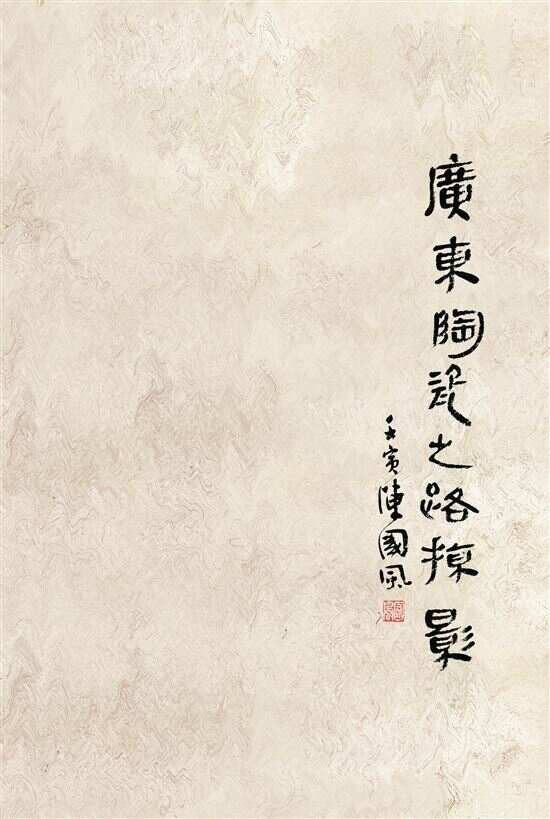 廣東陶瓷之路掠影
壬寅陳國風